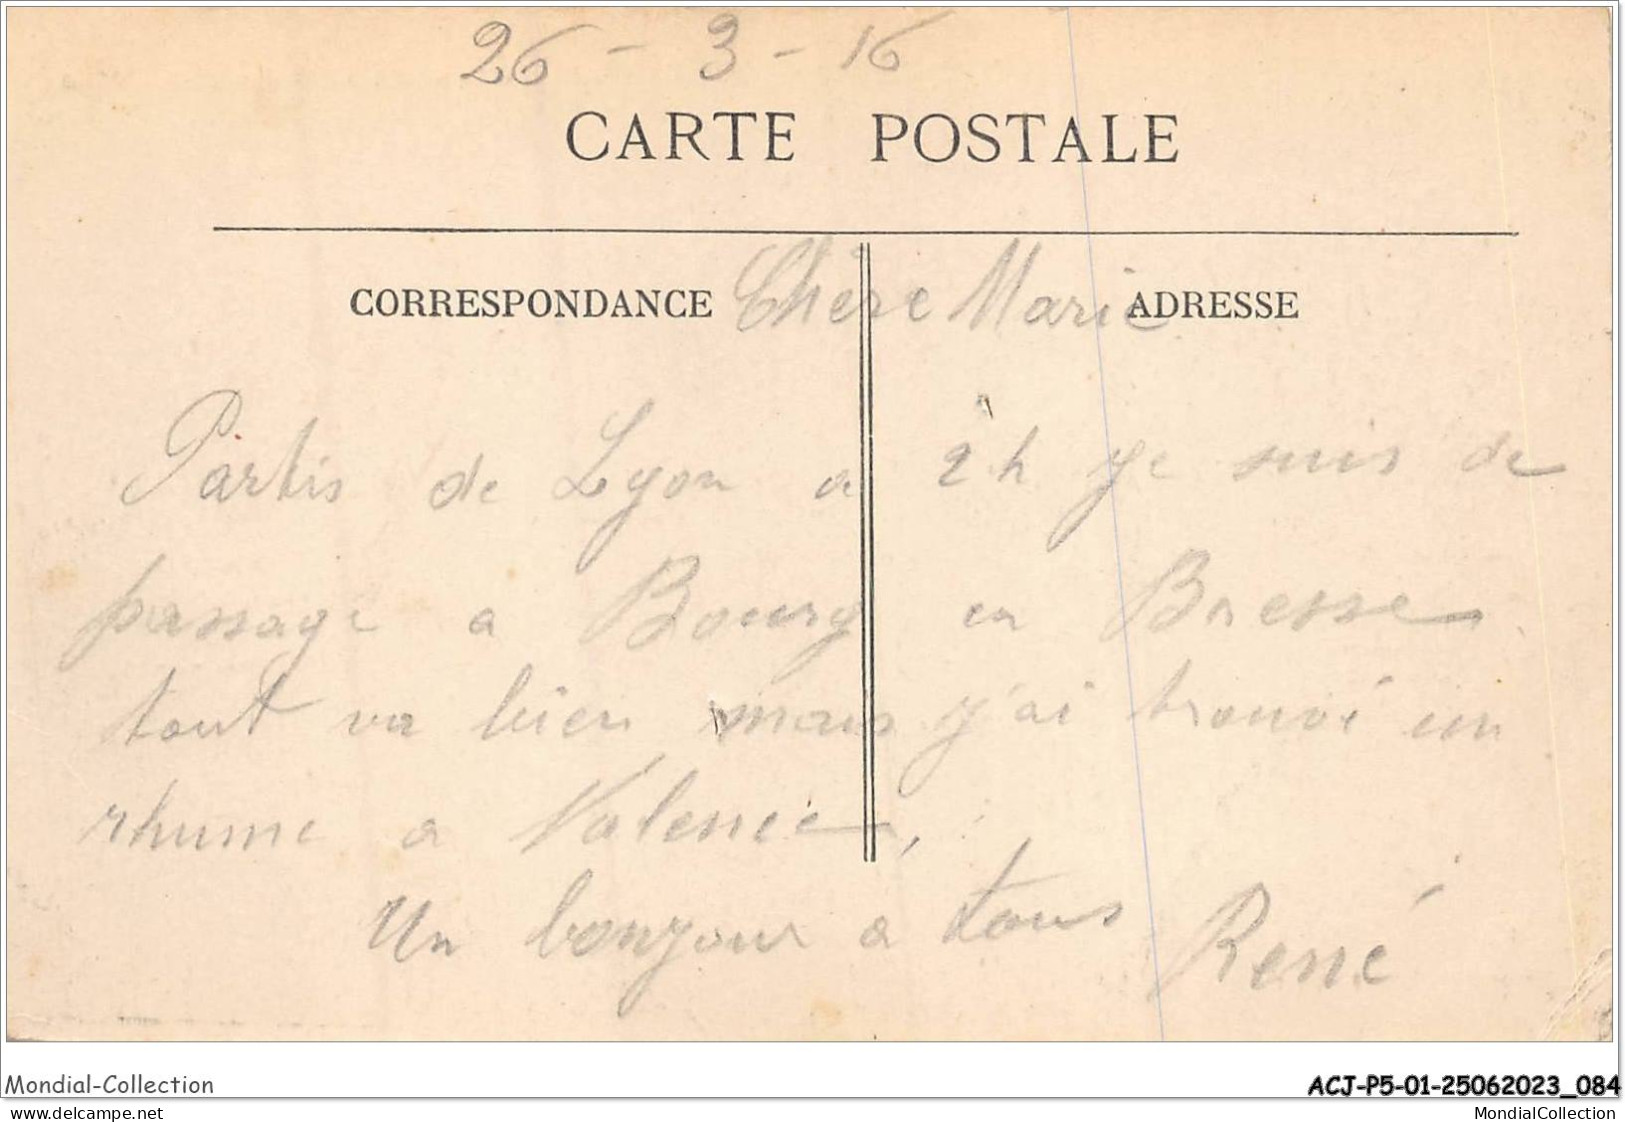 26 - 3 - 16
CARTE POSTALE
CORRESPONDANCE
ADRESSE
Chère Marie
Partis de Lyon a 2 h je suis de
passage a Bourg en Bresse
tout va bien mais j'ai trouvé un
rhume a Valence,
Un bonjour a tous
René
Mondial-Collection
ACJ-P5-01-25062023_084
www.delcampe.net
MondialCollection